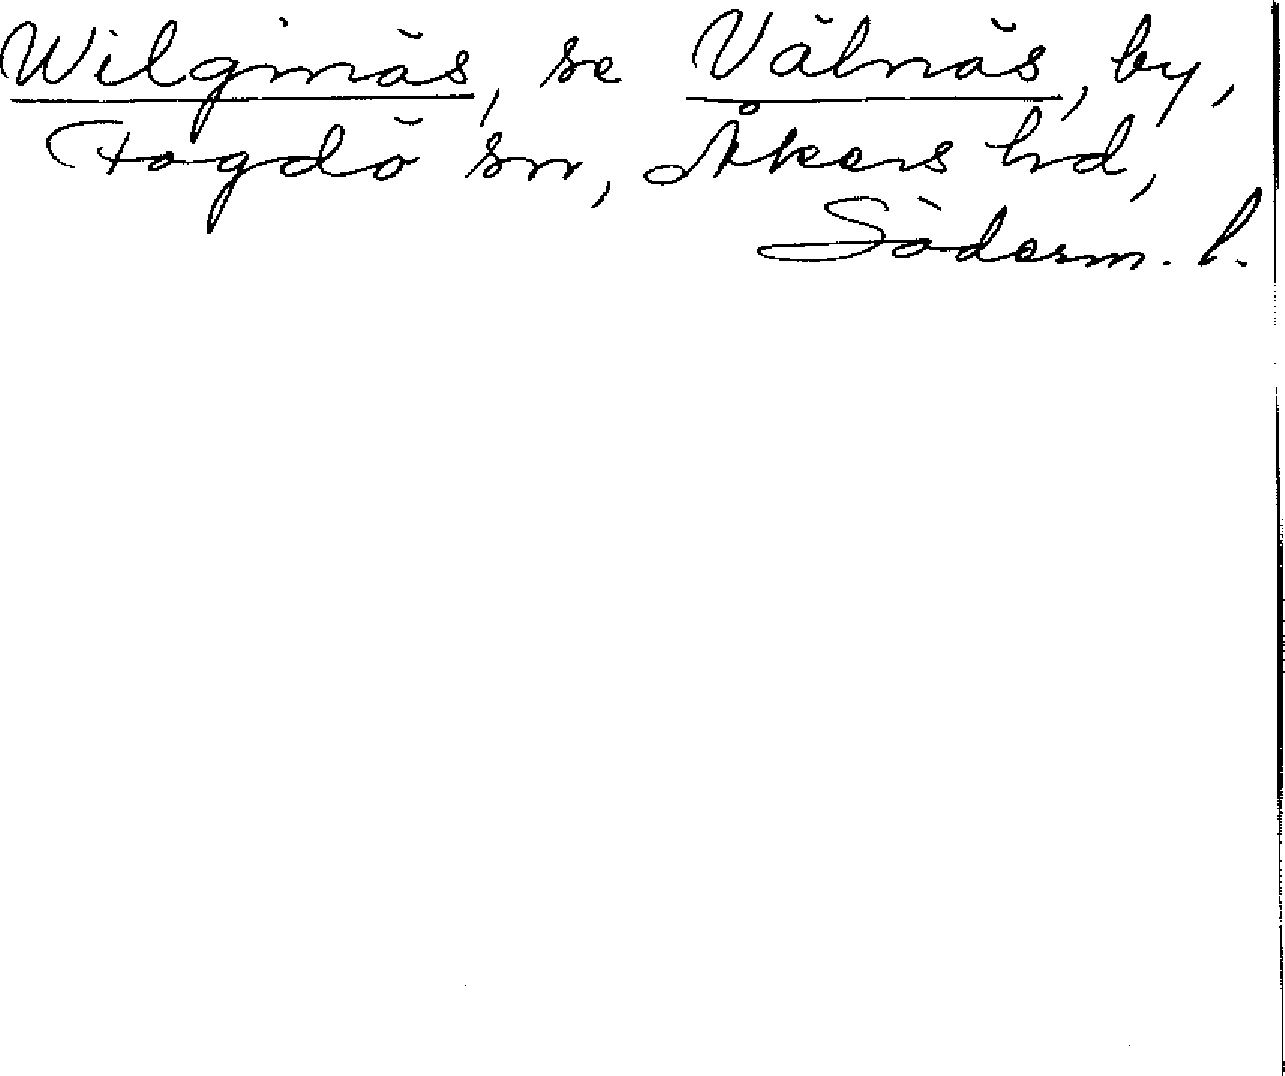 Wilginäs, se Välnäs, by,
Fogdö sn, Åkers hd,
Söderm. l.